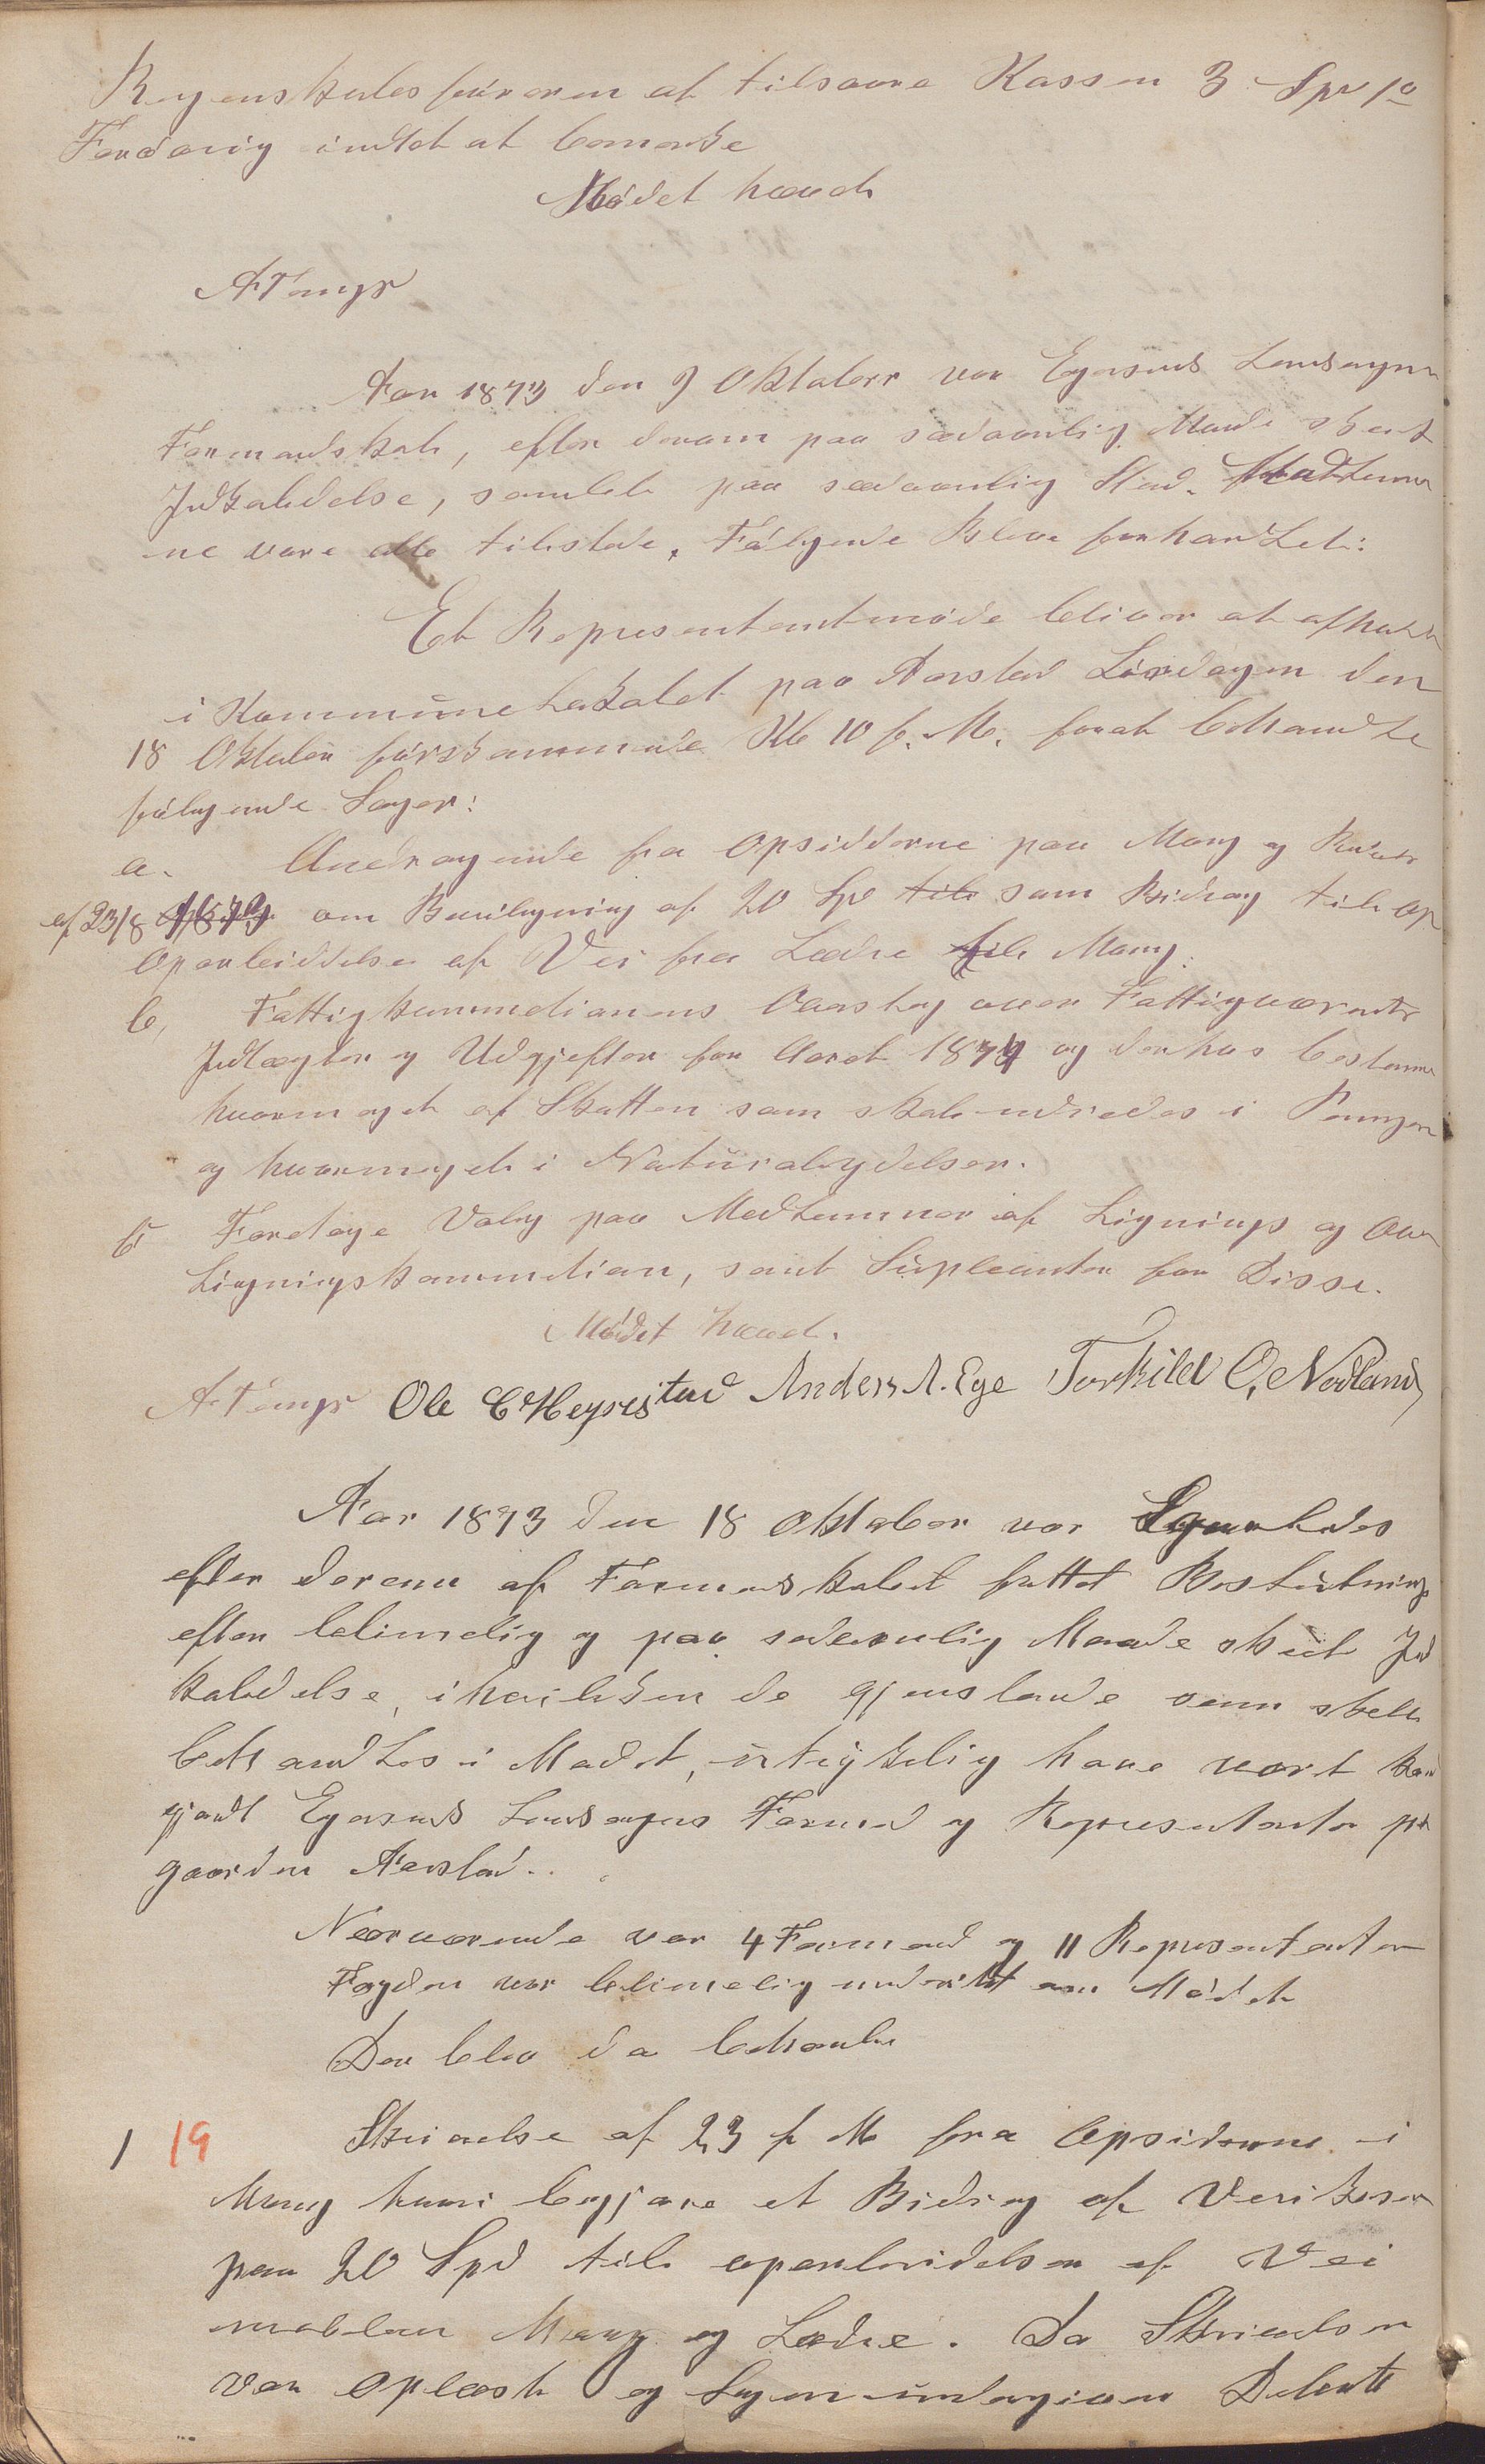 Regenskabsføreren at tilsvare Kassen 3 Spd
Forøvrig intet at bemærke
Mødet hævet
A Tengs
Aar 1873 den 9 Oktober var Egersunds Landsogns
Formandskab, efter derom paa sædvanlig Maade skeet
Indkaldelse, samlet paa sædvanlig Sted. Medlemmer
ne vare alle tilstede. Følgende Blev forhandlet:
Et Representantmøde bliver at afholde
i Kommunelokalet paa Aarstad Lørdagen den
18 Oktober førstkommende Kl 10 f. M. forat behandle
følgende Sager:
a. Andragende fra Opsidderne paa Mong og
af 23/8 1873 om Bevilgning af 20 Spd til som Bidrag til Op
Oparbeiddelse af Vei fra Lædre til Mong.
b, Fattigkommisionens Overslag over Fattigvæsenets
Indtægter og Udgifter for Aaret 1874 og derhos bestemme
hvormeget af Skatten som skal udredes i Penge
og hvormeget i Naturalydelser.
c Foretage Valg paa Medlemmer af Lignings og Over
Ligningskommision, samt Supleanter for Disse.
Mødet hævet.
A Tengs Ole C Heyrestad Anders A. Ege Torkild O. Nodland
Aar 1873 den 18 Oktober var
efter derom af Formandskabet fattet Beslutning
efter betimelig og paa sedvanlig Maade skeet Ind
kaldelse, i hvilken de gjenstande som skulle
behandles i Mødet, vært
gjordt Egersunds Landsogns Formend og Representanter paa
gaarden Aarstad.
Nærværende var 4 Formend og 11 Representanter
Fogden var betimelig underettet om Mødet
Der blev da behandlet
1 19 Skrivelse af 23 f M fra Opsiderne i
Mong hvori begjære et Bidrag af Veikassen
paa 20 Spd til oparbeidelsen af Vei
mellem Mong og Lædre. Da Skrivelsen
var Oplæst og Sagen undergiven Debatt